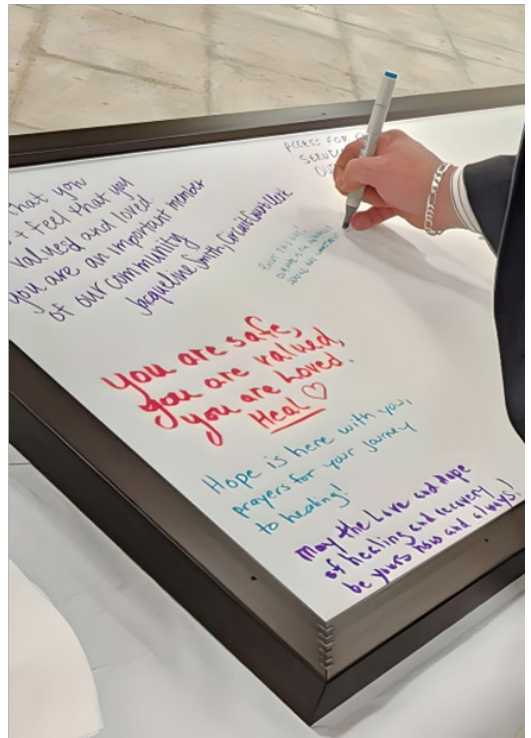 that you
feel that you
valued and loved
you are an important member
of our community
Jacqueline Smith, Circuit Court Clerk
ACCESS FOR
you are safe,
you are valued,
you are Loved.
Heal ♡
Hope is here with you,
prayers for your journey
to healing!
May the Love and Hope
of healing and recovery
be yours now and always!